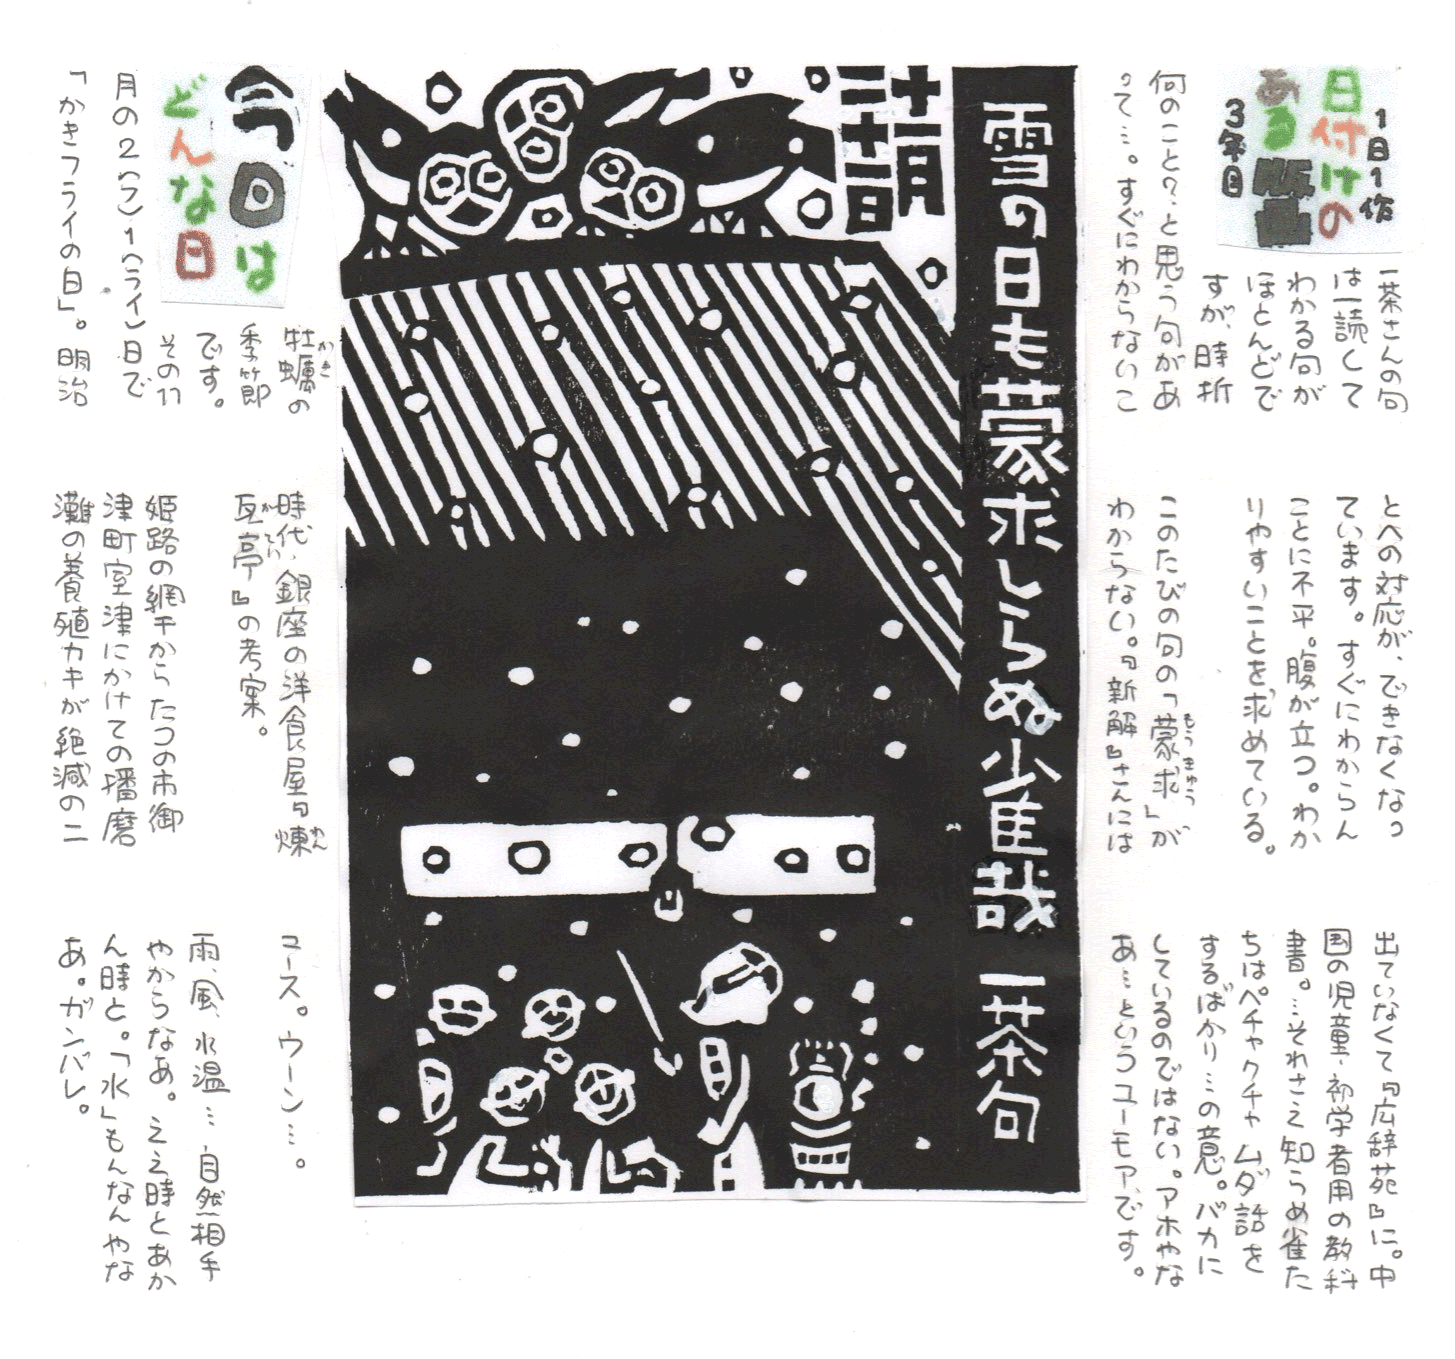 1日1作
日付けの
ある版画
3年目
一茶さんの句
は一読して
わかる句が
ほとんどで
すが、時折
何のこと?と思う句があ
って…。すぐにわからないこ
とへの対応が、できなくなっ
ています。すぐにわからん
ことに不平。腹が立つ。わか
りやすいことを求めている。
このたびの句の「蒙求」が
もうきゅう
わからない。『新解』さんには
出ていなくて『広辞苑』に。中
国の児童・初学者用の教科
書。…それさえ知らぬ雀た
ちはペチャクチャ ムダ話を
するばかり…の意。バカに
しているのではない。アホやな
あ…というユーモアです。
雪の日も蒙求しらぬ少隹哉 一茶句
十一月
二十一日
今日は
どんな日
牡蠣の
かき
季節
です。
その11
月の2(フ)1(ライ)日で
「かきフライの日」。明治
時代・銀座の洋食屋『煉
れん
瓦亭』の考案。
が てい
姫路の網干からたつの市御
津町室津にかけての播磨
灘の養殖カキが絶滅の二
ュース。ウーン…。
雨、風、水温…自然相手
やからなあ。ええ時とあか
ん時と。「水」もんなんやな
あ。ガンバレ。